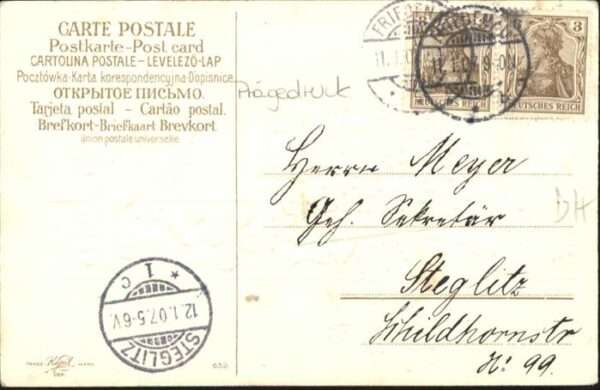 CARTE POSTALE
Postkarte-Post card
CARTOLINA POSTALE-LEVELEZŐ-LAP
Pocztówka-Karta korespondencyjna-Dopisnice
ОТКРЫТОЕ ПИСЬМО.
Tarjeta postal - Cartão postal.
Brefkort-Briefkaart Brevkort.
union postale universelle.
Prägedruck
11.1.07
3
DEUTSCHES REICH
3
DEUTSCHES REICH
Herrn Meyer
Geh. Sekretär
BH
Steglitz
Schildhornstr
No: 99.
STEGLITZ
12.1.07.5-6V.
* 1 c